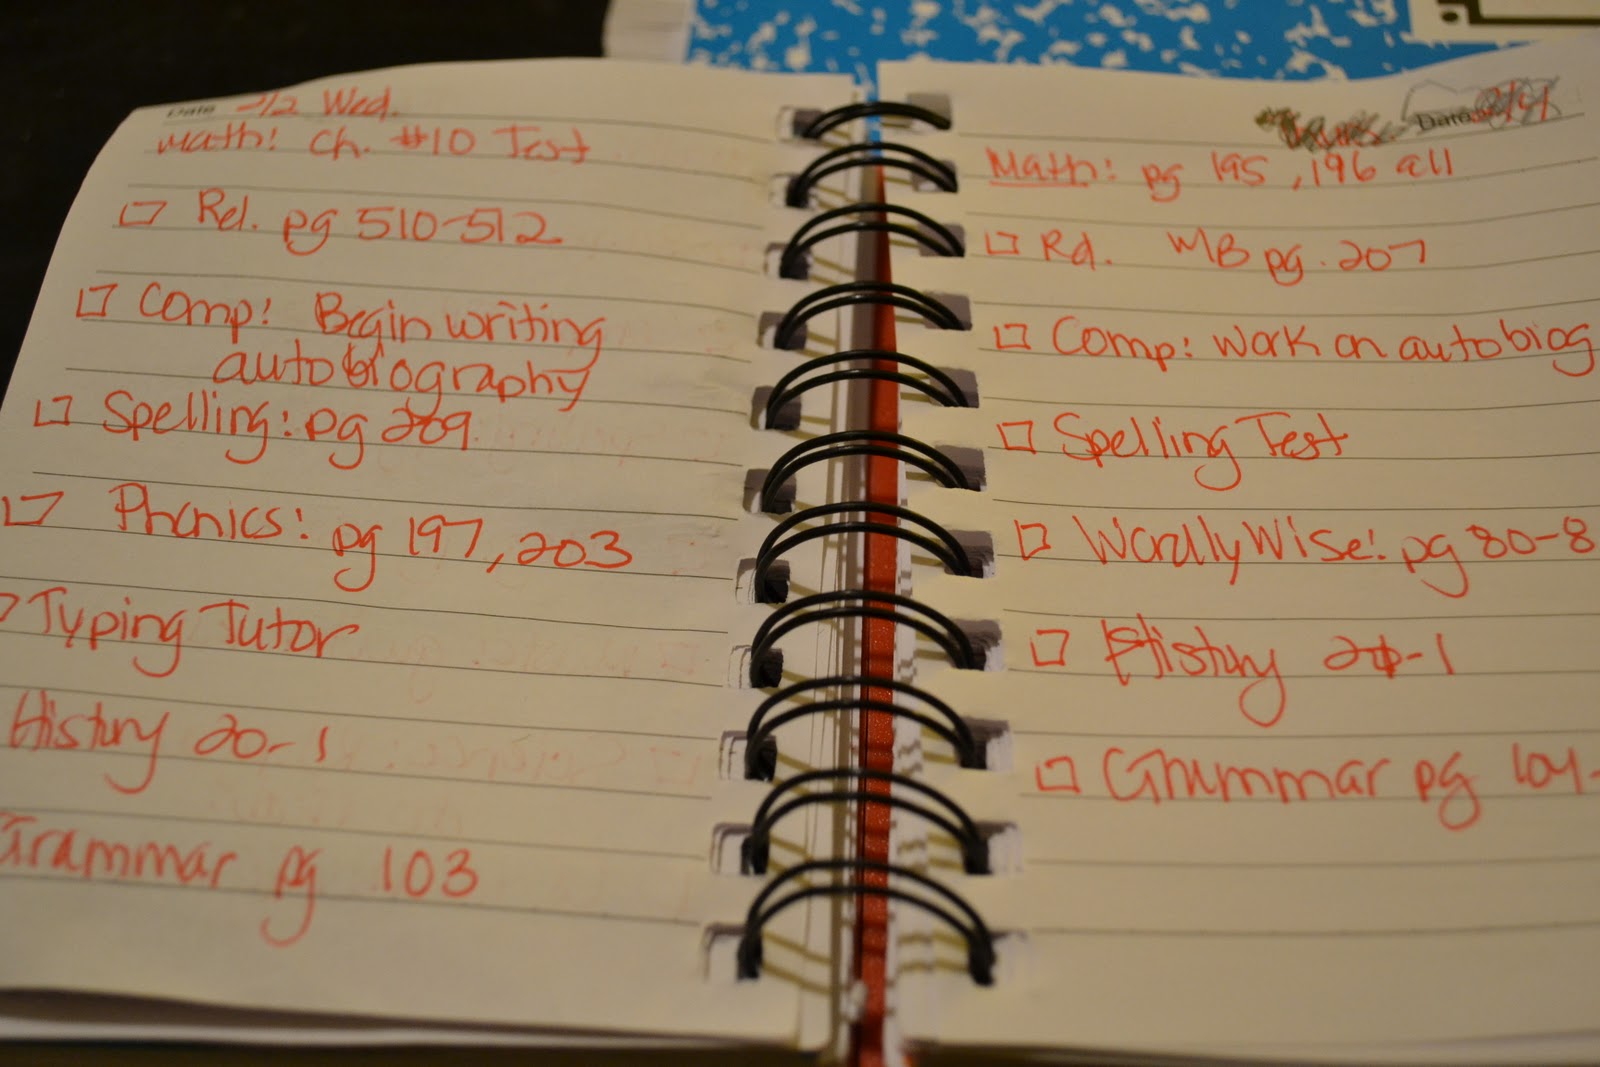 Date -/2 Wed.
Math: Ch. #10 Test
Rd. pg 510-512
Comp: Begin writing
autobiography
Spelling: pg 209
Phonics: pg 197, 203
Typing Tutor
History 20-1
Grammar pg 103
Date
Math: pg 195, 196 all
Rd. WB pg. 207
Comp: work on autobiog
Spelling Test
WordlyWise: pg 80-8
History 20-1
Grammar pg 104-